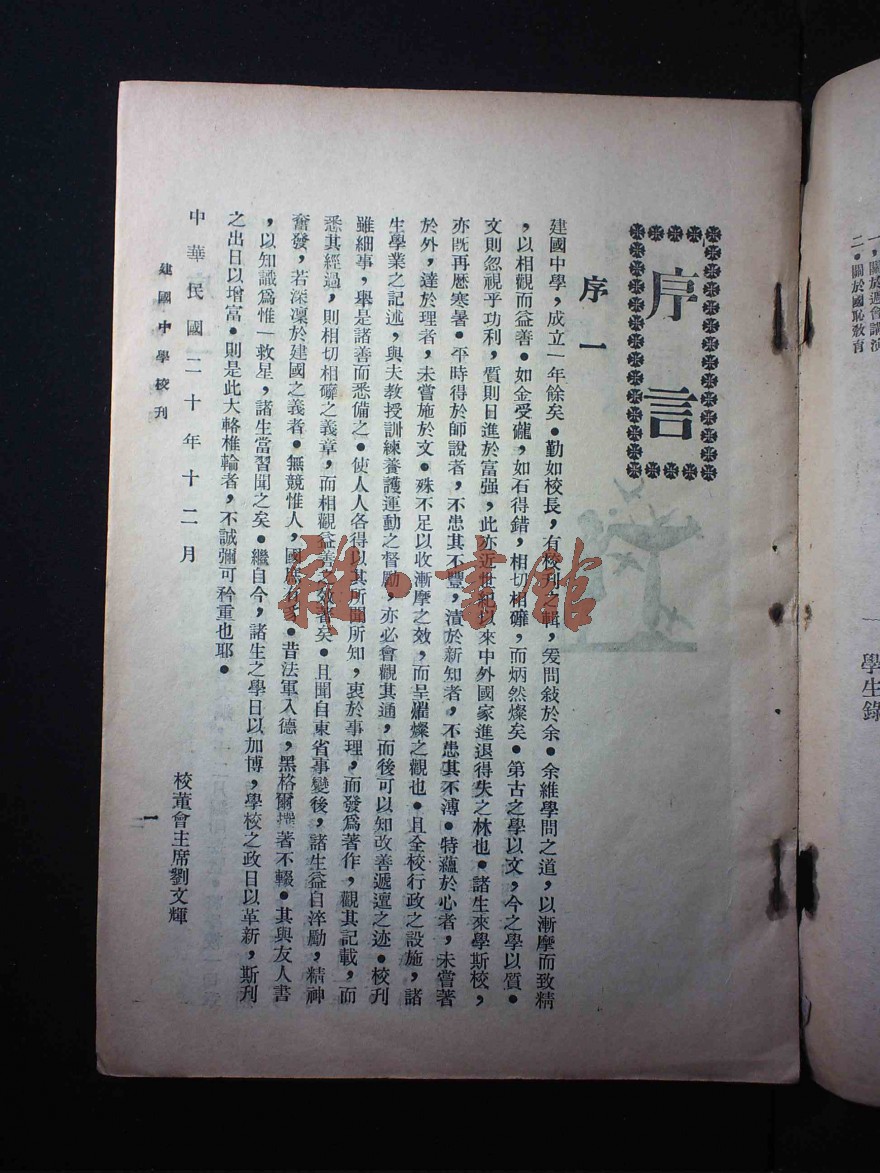 一，關於週會講演
二。關於國恥教育
學生錄
序言
序一
建國中學，成立一年餘矣。勤如校長，有校刊之輯，爰問敍於余。余維學問之道，以漸摩而致精
，以相觀而益善。如金受礲，如石得錯，相切相礲，而炳然燦矣。第古之學以文，今之學以質。
文則忽視乎功利，質則日進於富强，此亦近世紀以來中外國家進退得失之林也。諸生來學斯校，
亦既再歷寒暑。平時得於師說者，不患其不豐，漬於新知者，不患其不溥。特蘊於心者，未嘗著
於外，達於理者，未嘗施於文。殊不足以收漸摩之效，而呈璀燦之觀也。且全校行政之設施，諸
生學業之記述，與夫教授訓練養護運動之督勵，亦必會觀其通，而後可以知改善遞邅之迹。校刊
雖細事，舉是諸善而悉備之。使人人各得以其所聞所知，衷於事理，而發爲著作，觀其記載，而
悉其經過，則相切相礲之義章，而相觀益善之效著矣。且聞自東省事變後，諸生益自淬勵，精神
奮發，若深凜於建國之義者。無競惟人，國庶有豸。昔法軍入德，黑格爾撰著不輟。其與友人書
，以知識爲惟一救星，諸生當習聞之矣。繼自今，諸生之學日以加博，學校之政日以革新，斯刊
之出日以增富。則是此大輅椎輪者，不誠彌可矜重也耶。
校董會主席劉文輝
中華民國二十年十二月
建國中學校刊
一
雜·書館